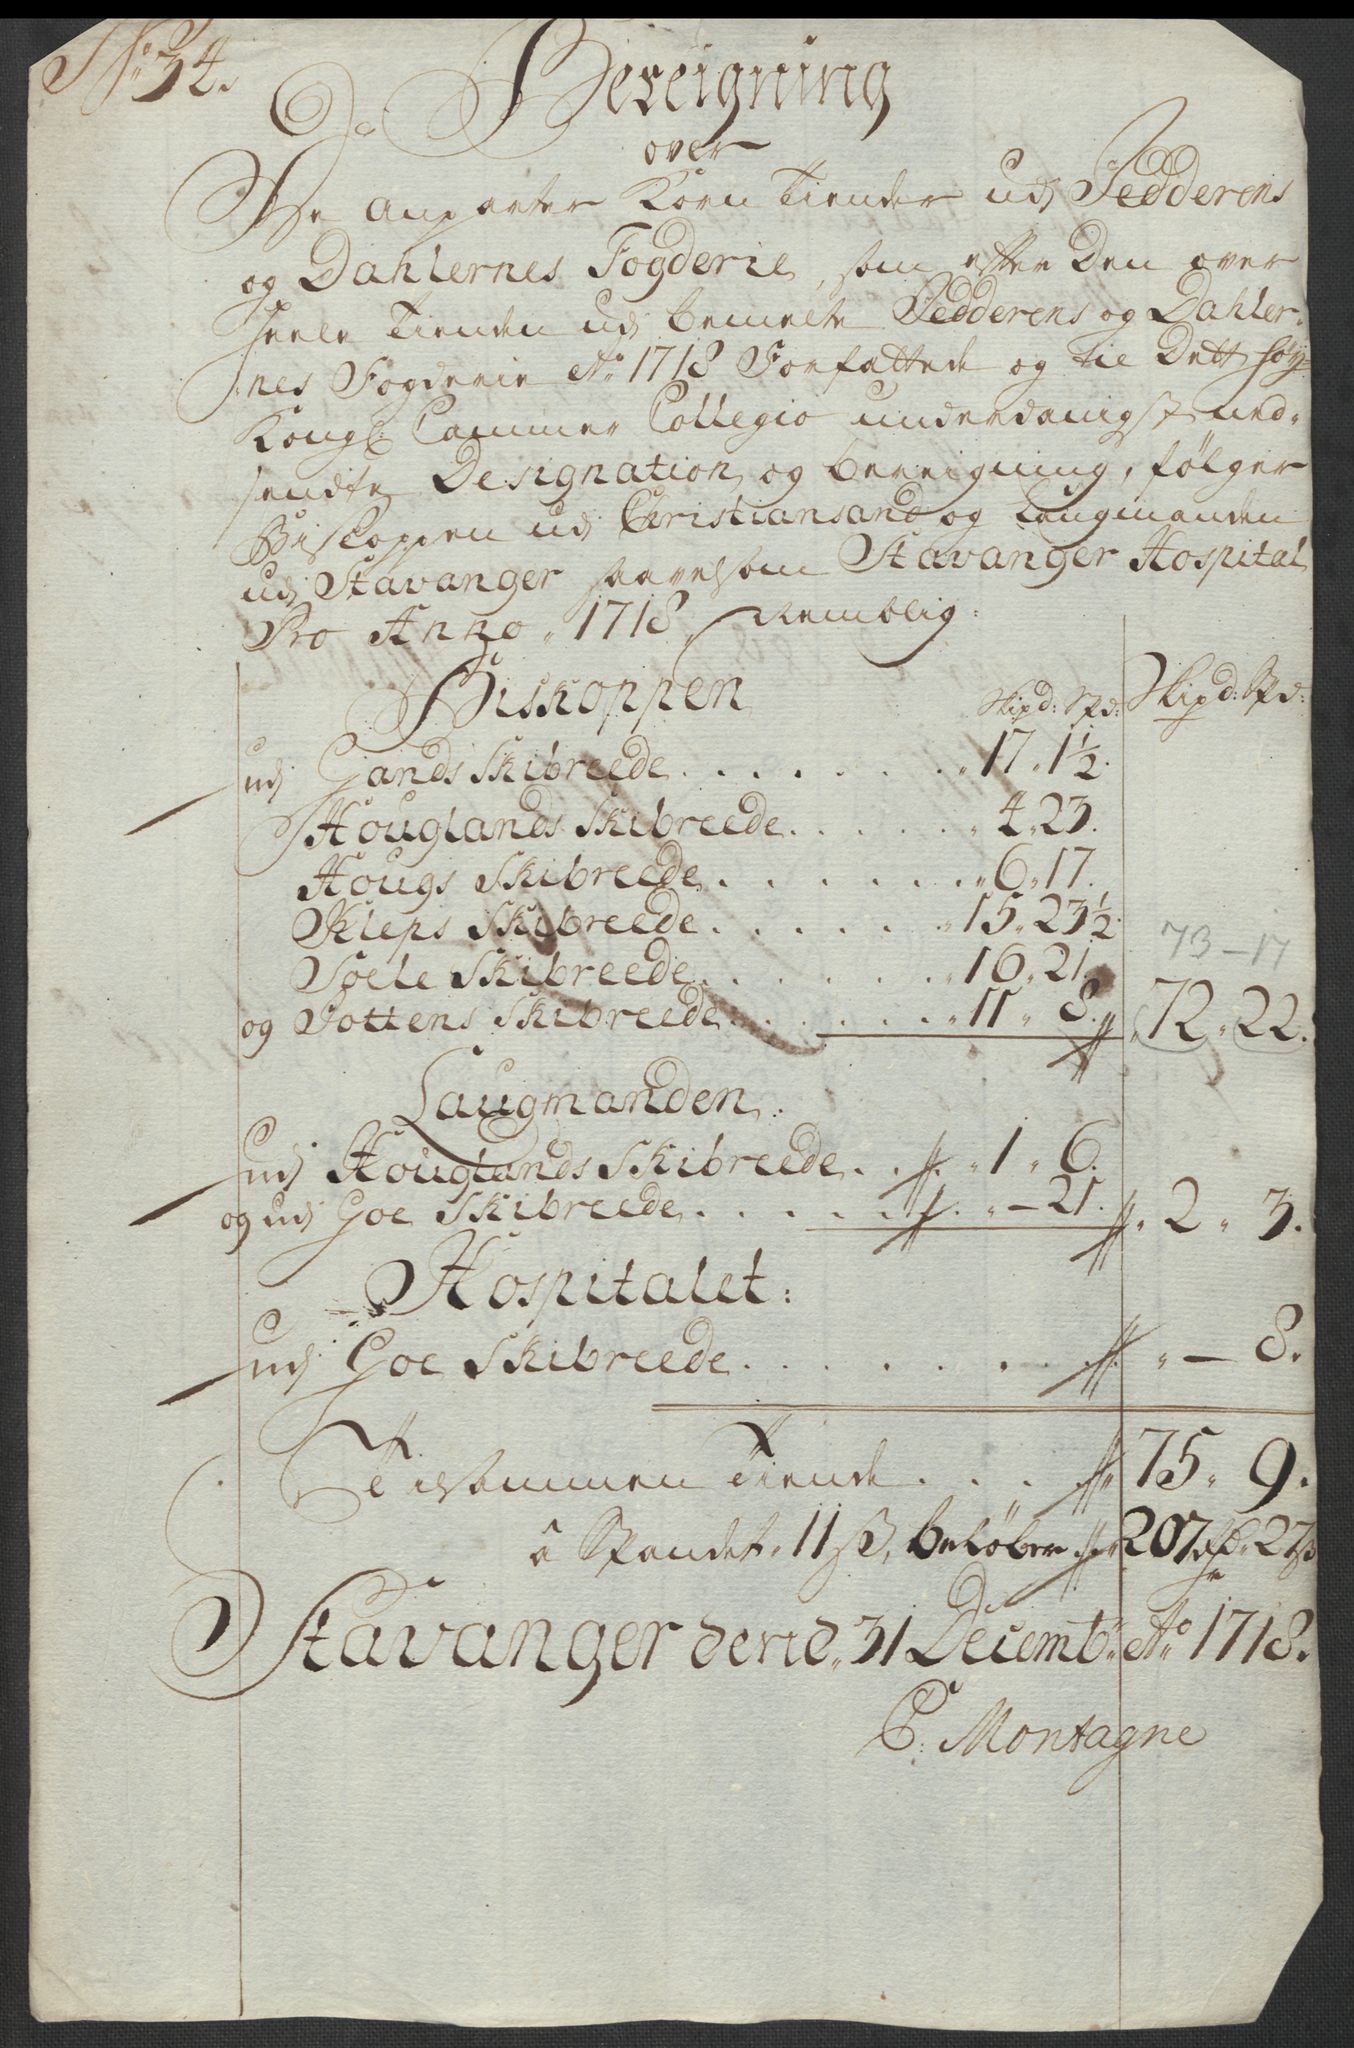 No 34.
Bereigning
over
De anparter Korn Tiender udj Jedderens
og Dahlernes Fogderie, som efter den over
heele Tienden udj bemelte Jedderens og Dahler-
nes Fogderie Ao 1718 Forfattede og til dett høy
Kongl: Cammer Collegio underdanigst ned-
sendte Designation og bereigning, følger
Biskoppen udj Christiansand og Laugmanden
udj Stavanger saavelsom Stavanger Hospital
Pro Anno 1718, Nemblig:
Biskoppen Skipd: Spd: Skipd: Spd:
udj Gands Skibreede . . . . . . . 17 " 1½.
Houglands Skibreede . . . . . 4 " 23.
Hougs Skibreede . . . . . . 6 " 17.
Kleps Skibreede . . . . . . 15 " 23½.
73 - 17
Soele Skibreede . . . . . . 16 " 21.
og Vottens Skibreede . . . . . . 11 " 8. 72 " 22.
Laugmanden:
udj Houglands Skibreede . . . 1 " 6.
og udj Goe Skibreede . . . . . . " - 21. 2 " 3.
Hospitalet:
udj Goe Skibreede . . . . . . . " - 8.
Tilsammen Tiende . . . 75 " 9.
â Spandet 11 ß, beløber 207 Rd 27 ß
Stavanger dend 31 Decembr Ao 1718.
C: Montagne